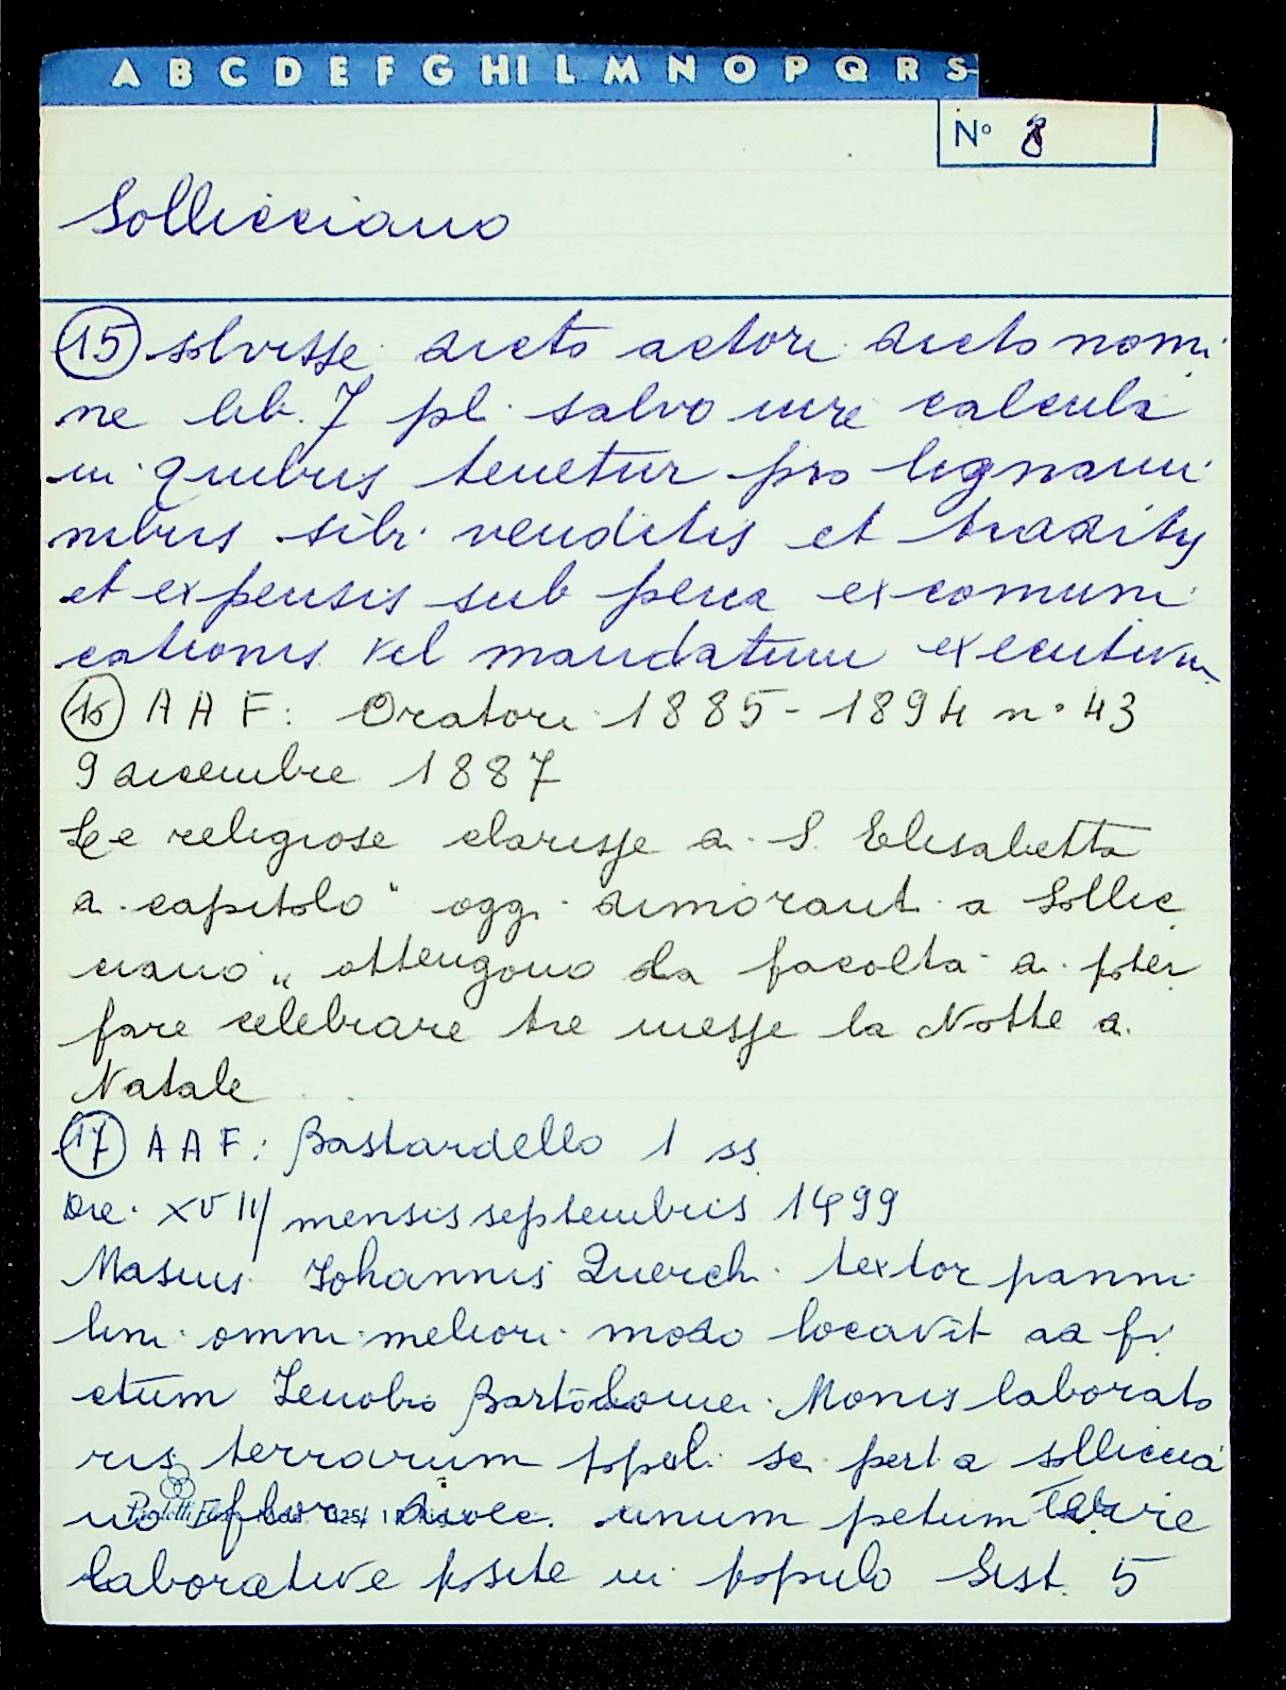 A B C D E F G HI L M N O P Q R S
N° 8
Sollicciano
15 solvisse dicto actori dicto nomi
ne lib. 7 pl. salvo iure calculi
in quibus tenetur pro lignami
nibus sibi venditis et traditis
et expensis sub pena excomuni
cationis vel mandatum executivum
16 AAF: Oratori 1885-1894 n° 43
9 dicembre 1887
Le religiose clarisse di S. Elisabetta
a capitolo " oggi dimoranti a Sollic
ciano " ottengono la facoltà di poter
fare celebrare tre messe la Notte di
Natale
17 AAF: Bastardello 1 ss
Die XVIII mensis septembris 1499
Masus Iohannis Querchi textor panni
lini omni meliori modo locavit ad fi
ctum Zenobio Bartolomei Monis laborato
ris terrarum popoli sci petri a solliccia
no flor. dioec. unum petium terre
laborative posite in populo Sist. 5